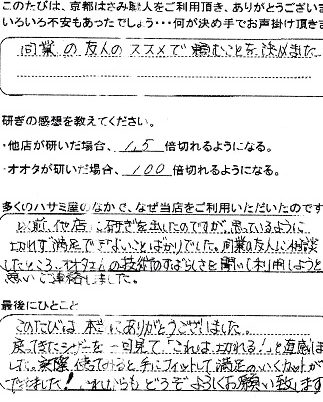 このたびは、京都はさみ職人をご利用頂き、ありがとうございま
いろいろ不安もあったでしょう・・・何が決め手でお声掛け頂きま
同業の友人のススメで頼むことを決めました
研ぎの感想を教えてください。
・他店が研いだ場合、1.5 倍切れるようになる。
・オオタが研いだ場合、100 倍切れるようになる。
多くのハサミ屋のなかで、なぜ当店をご利用いただいたのです
以前、他店に研ぎを出したのですが、思っているように
切れず満足できないことばかりでした。同業の友人に相談
したところ、オオタさんの技術のすばらしさを聞いて利用しようと
思いご連絡しました。
最後にひとこと
このたびは本当にありがとうございました。
戻ってきたシザーを一目見て、「これは切れる！」と直感しま
した。実際使ってみると、手にフィットして満足のいくカットが
できました！これからもどうぞよろしくお願い致します